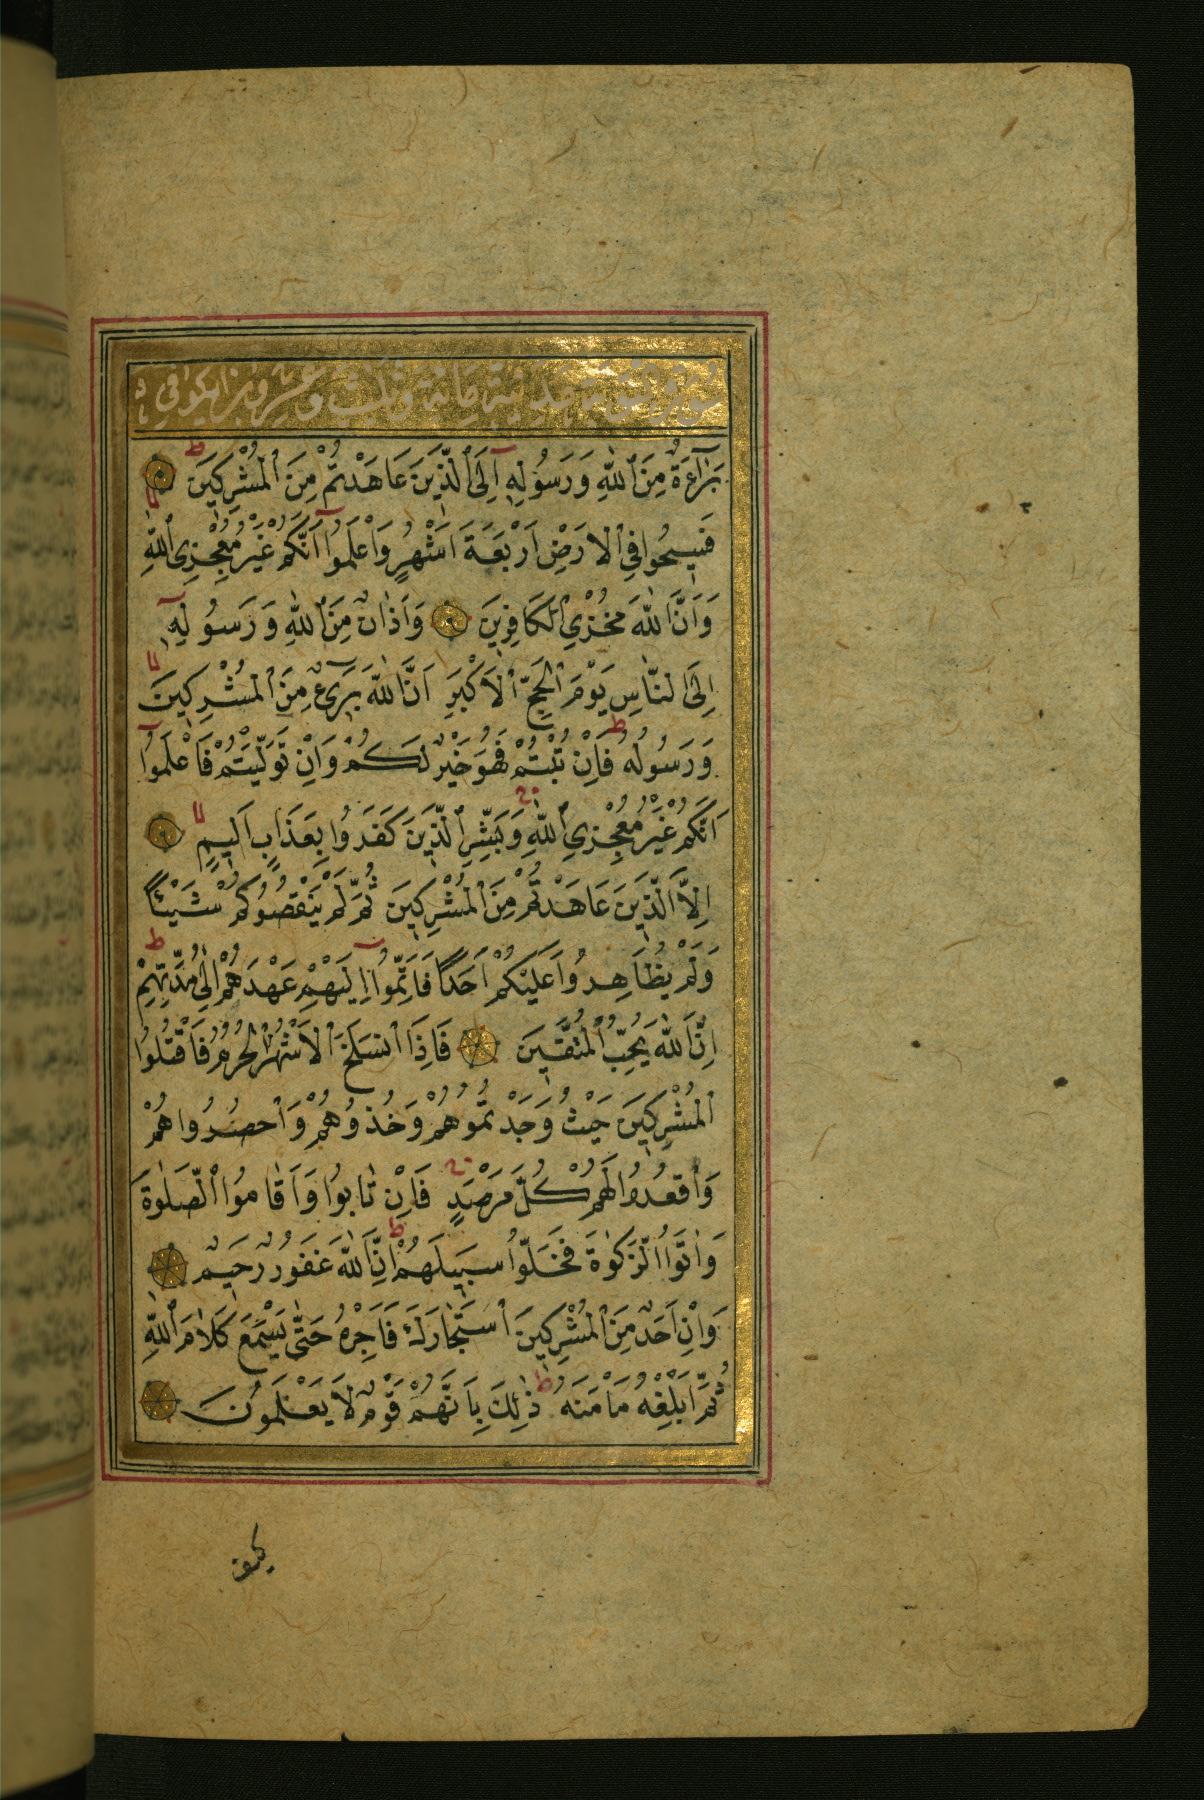 سورة التوبة مدنية مائة وثلث وعشرون اية كوفي
بَرَآءَةٌ مِنَ ٱللّٰهِ وَرَسُولِهِ اِلَى ٱلَّذِينَ عَاهَدْتُمْ مِنَ ٱلْمُشْرِكِينَ
فَسِيحُوا فِي ٱلْاَرْضِ اَرْبَعَةَ اَشْهُرٍ وَٱعْلَمُوا اَنَّكُمْ غَيْرُ مُعْجِزِي ٱللّٰهِ
وَاَنَّ ٱللّٰهَ مُخْزِي ٱلْكَافِرِينَ وَاَذَانٌ مِنَ ٱللّٰهِ وَرَسُولِهِ
اِلَى ٱلنَّاسِ يَوْمَ ٱلْحَجِّ ٱلْاَكْبَرِ اَنَّ ٱللّٰهَ بَرِيءٌ مِنَ ٱلْمُشْرِكِينَ
وَرَسُولُهُ فَاِنْ تُبْتُمْ فَهُوَ خَيْرٌ لَكُمْ وَاِنْ تَوَلَّيْتُمْ فَاعْلَمُوا
اَنَّكُمْ غَيْرُ مُعْجِزِي ٱللّٰهِ وَبَشِّرِ ٱلَّذِينَ كَفَرُوا بِعَذَابٍ اَلِيمٍ
اِلَّا ٱلَّذِينَ عَاهَدْتُمْ مِنَ ٱلْمُشْرِكِينَ ثُمَّ لَمْ يَنْقُصُوكُمْ شَيْئًا
وَلَمْ يُظَاهِرُوا عَلَيْكُمْ اَحَدًا فَاَتِمُّوا اِلَيْهِمْ عَهْدَهُمْ اِلٰى مُدَّتِهِمْ
اِنَّ ٱللّٰهَ يُحِبُّ ٱلْمُتَّقِينَ فَاِذَا ٱنْسَلَخَ ٱلْاَشْهُرُ ٱلْحُرُمُ فَاقْتُلُوا
ٱلْمُشْرِكِينَ حَيْثُ وَجَدْتُمُوهُمْ وَخُذُوهُمْ وَٱحْصُرُوهُمْ
وَٱقْعُدُوا لَهُمْ كُلَّ مَرْصَدٍ فَاِنْ تَابُوا وَاَقَامُوا ٱلصَّلٰوةَ
وَاٰتَوُا ٱلزَّكٰوةَ فَخَلُّوا سَبِيلَهُمْ اِنَّ ٱللّٰهَ غَفُورٌ رَحِيمٌ
وَاِنْ اَحَدٌ مِنَ ٱلْمُشْرِكِينَ ٱسْتَجَارَكَ فَاَجِرْهُ حَتّٰى يَسْمَعَ كَلَامَ ٱللّٰهِ
ثُمَّ اَبْلِغْهُ مَاْمَنَهُ ذٰلِكَ بِاَنَّهُمْ قَوْمٌ لَا يَعْلَمُونَ
كيف